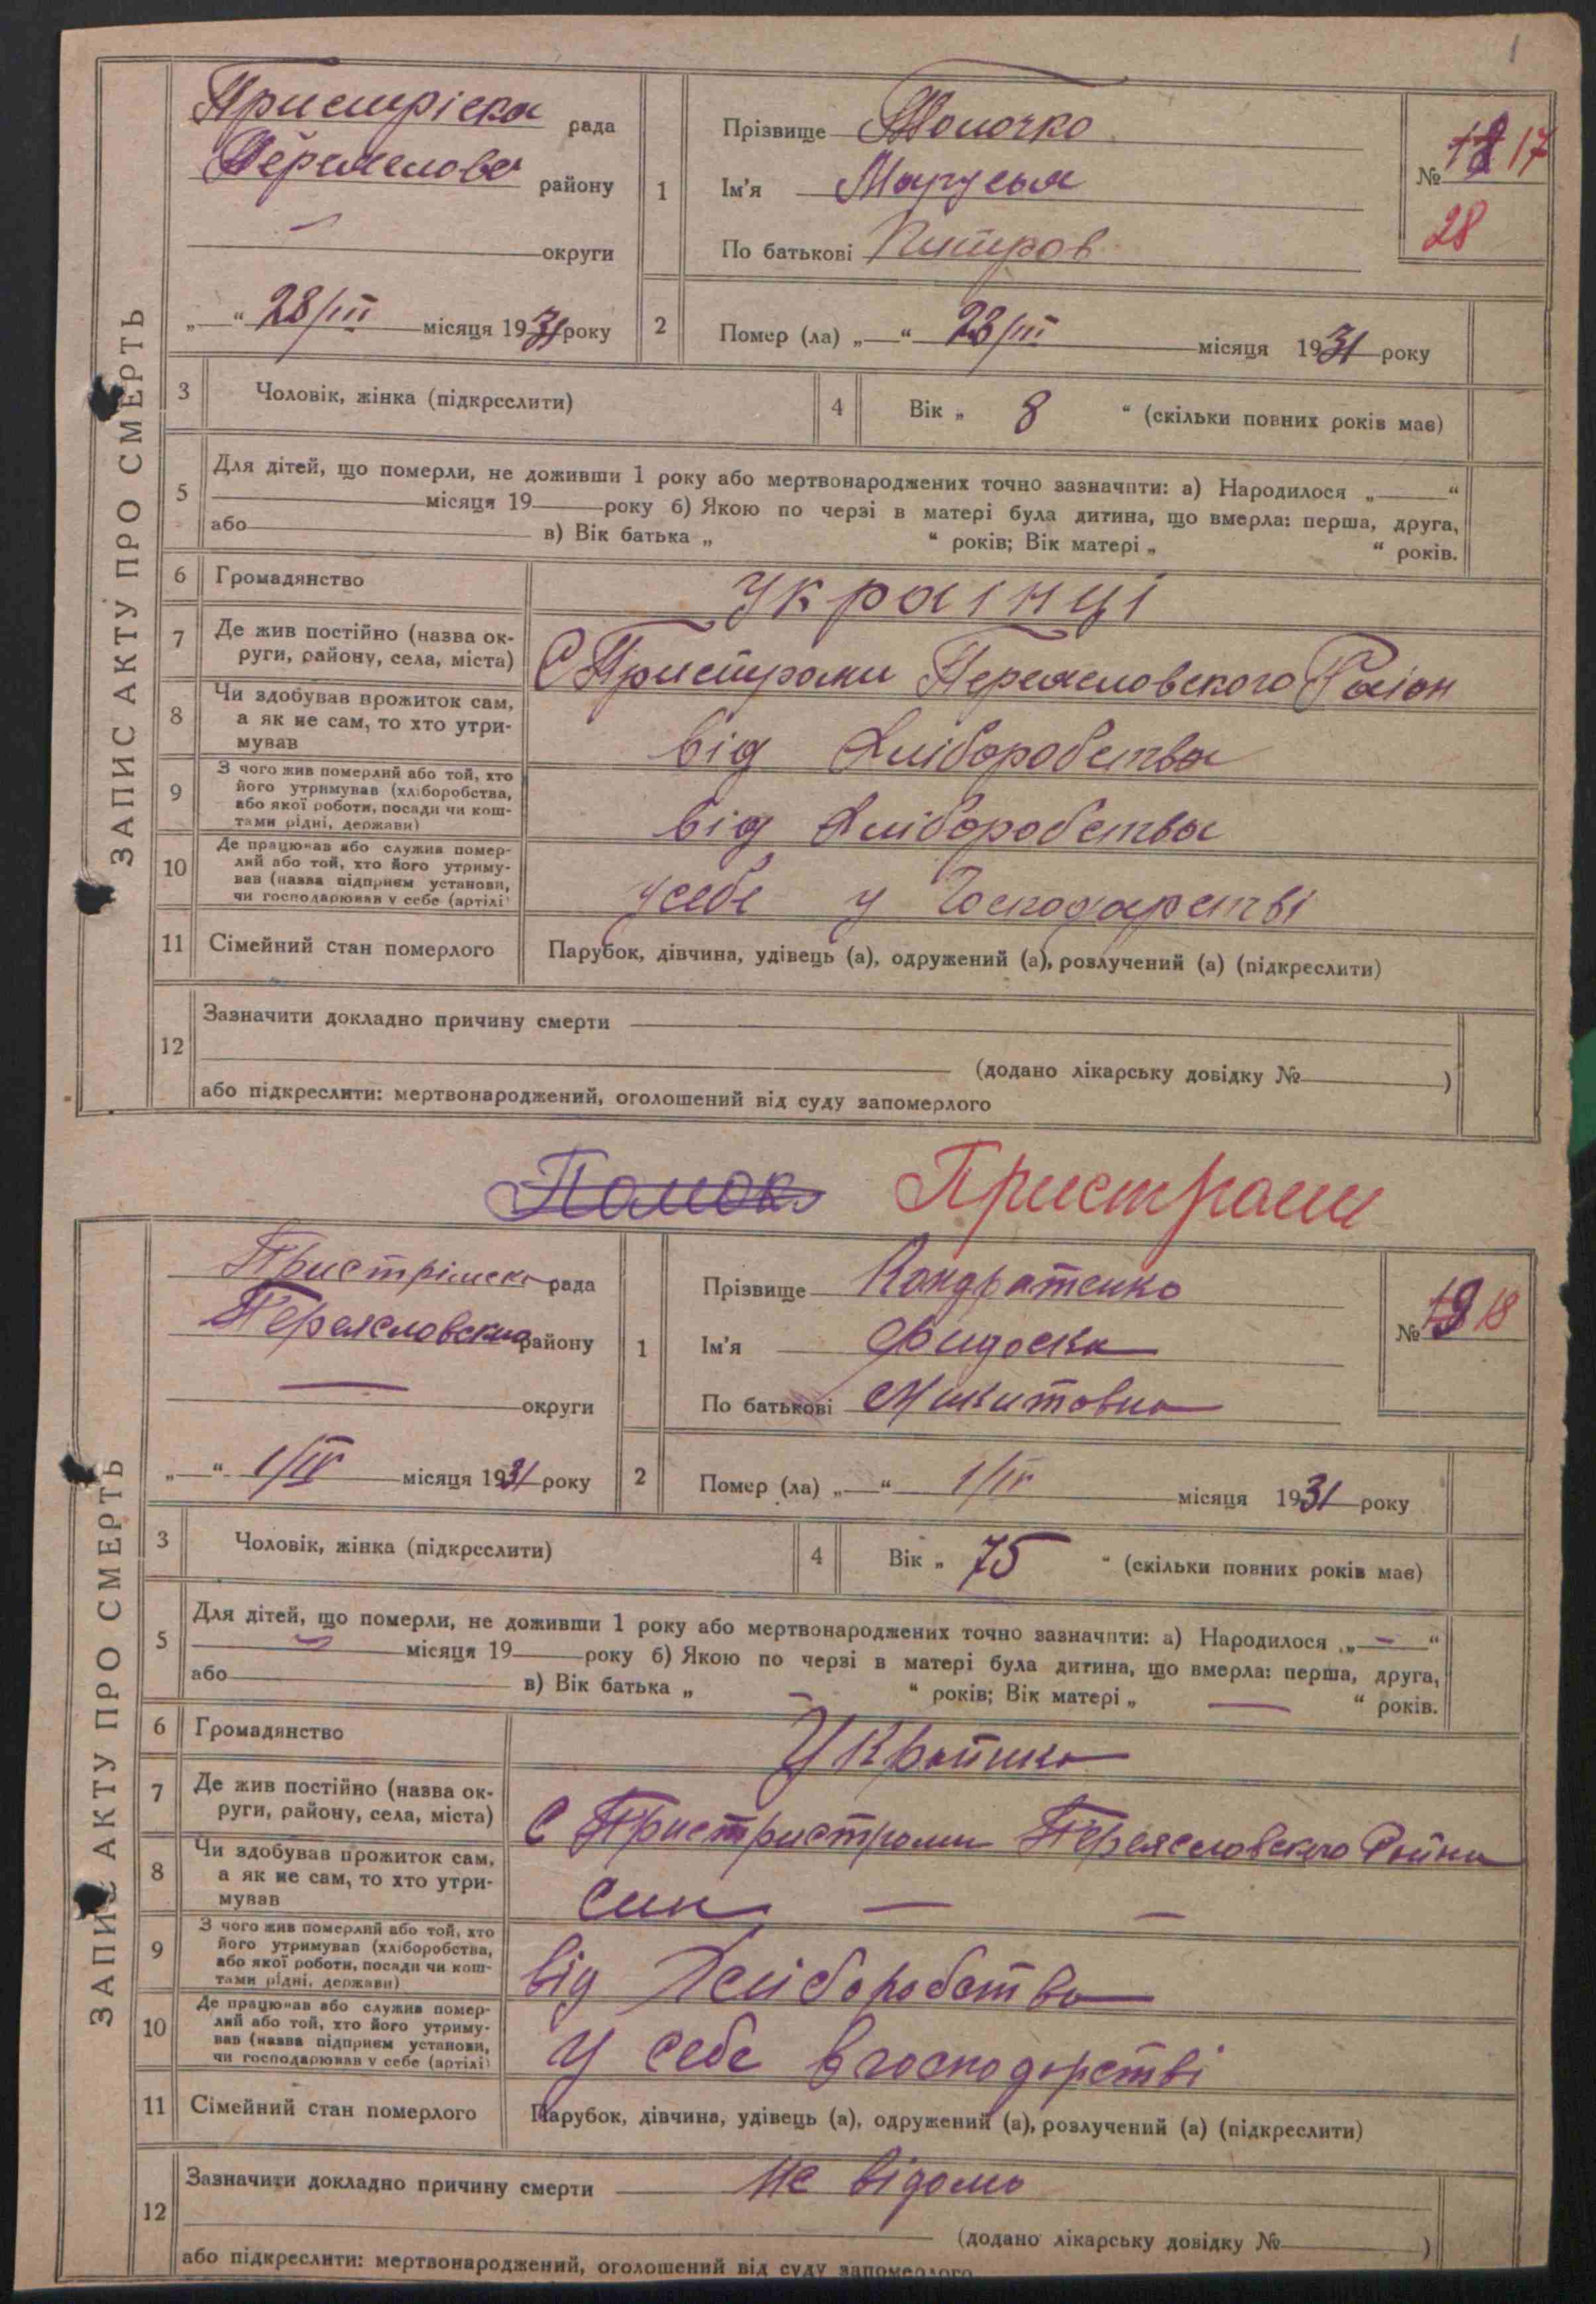 1
ЗАПИС АКТУ ПРО СМЕРТЬ
Пристріска рада
району
округи
„ “ 28/III місяця 1931 року
1
Прізвище
Ім'я Маруся
По батькові
№ 17
28
2 Помер (ла) „ “ 28/III місяця 1931 року
3 Чоловік, жінка (підкреслити)
4 Вік „ 8 “ (скільки повних років має)
5 Для дітей, що померли, не доживши 1 року або мертвонароджених точно зазначити: а) Народилося „ “
місяця 19 року б) Якою по черзі в матері була дитина, що вмерла: перша, друга,
або в) Вік батька „ “ років; Вік матері „ “ років.
6 Громадянство Українці
7 Де жив постійно (назва ок-
руги, району, села, міста)
С Пристроми Переясловского Раіон
8 Чи здобував прожиток сам,
а як не сам, то хто утри-
мував
від Хліборобства
9 З чого жив померлий або той, хто
його утримував (хліборобства,
або якої роботи, посади чи кош-
тами рідні, держави)
від Хліборобства
10 Де працював або служив помер-
лий або той, хто його утриму-
вав (назва підприєм установи,
чи господарював у себе (артілі)
усебе у Господарстві
11 Сімейний стан померлого Парубок, дівчина, удівець (а), одружений (а), розлучений (а) (підкреслити)
12 Зазначити докладно причину смерти
(додано лікарську довідку № )
або підкреслити: мертвонароджений, оголошений від суду запомерлого
Пристроми
ЗАПИС АКТУ ПРО СМЕРТЬ
рада
Переясловски району
округи
„ “ 1/IV місяця 1931 року
1
Прізвище Кондратенко
Ім'я Фидоска
По батькові Микитовна
№ 19 18
2 Помер (ла) „ “ 1/IV місяця 1931 року
3 Чоловік, жінка (підкреслити)
4 Вік „ 75 “ (скільки повних років має)
5 Для дітей, що померли, не доживши 1 року або мертвонароджених точно зазначити: а) Народилося „ — “
місяця 19 року б) Якою по черзі в матері була дитина, що вмерла: перша, друга,
або в) Вік батька „ “ років; Вік матері „ — “ років.
6 Громадянство
7 Де жив постійно (назва ок-
руги, району, села, міста)
С Пристристроми Переясловского
8 Чи здобував прожиток сам,
а як не сам, то хто утри-
мував
син — —
9 З чого жив померлий або той, хто
його утримував (хліборобства,
або якої роботи, посади чи кош-
тами рідні, держави)
від Хліборобства
10 Де працював або служив помер-
лий або той, хто його утриму-
вав (назва підприєм установи,
чи господарював у себе (артілі)
У себе в господорстві
11 Сімейний стан померлого Парубок, дівчина, удівець (а), одружений (а), розлучений (а) (підкреслити)
12 Зазначити докладно причину смерти не відомо
(додано лікарську довідку № )
або підкреслити: мертвонароджений, оголошений від суду запомерлого